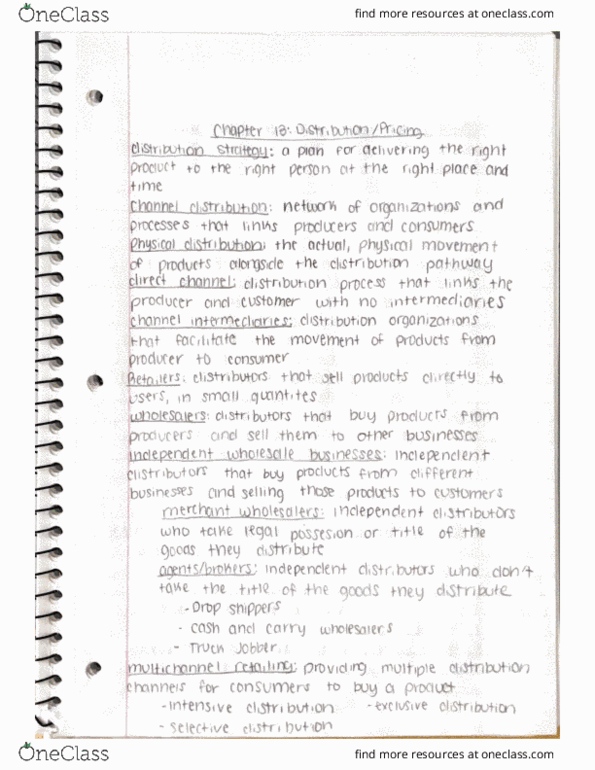 OneClass
find more resources at oneclass.com
Chapter 13: Distribution/Pricing
distribution strategy: a plan for delivering the right
product to the right person at the right place and
time
channel distribution: network of organizations and
processes that links producers and consumers
physical distribution: the actual, physical movement
of products alongside the distribution pathway
direct channel: distribution process that links the
producer and customer with no intermediaries
channel intermediaries: distribution organizations
that facilitate the movement of products from
producer to consumer
Retailers: distributors that sell products directly to
users, in small quantites
wholesalers: distributors that buy products from
producers and sell them to other businesses
independent wholesale businesses: independent
distributors that buy products from different
businesses and selling those products to customers
merchant wholesalers: independent distributors
who take legal possesion or title of the
goods they distribute
agents/brokers: independent distributors who don't
take the title of the goods they distribute
- Drop shippers
- cash and carry wholesalers
- Truck Jobber
multichannel retailing: providing multiple distribution
channels for consumers to buy a product
- intensive distribution - exclusive distribution
- selective distribution
OneClass
find more resources at oneclass.com